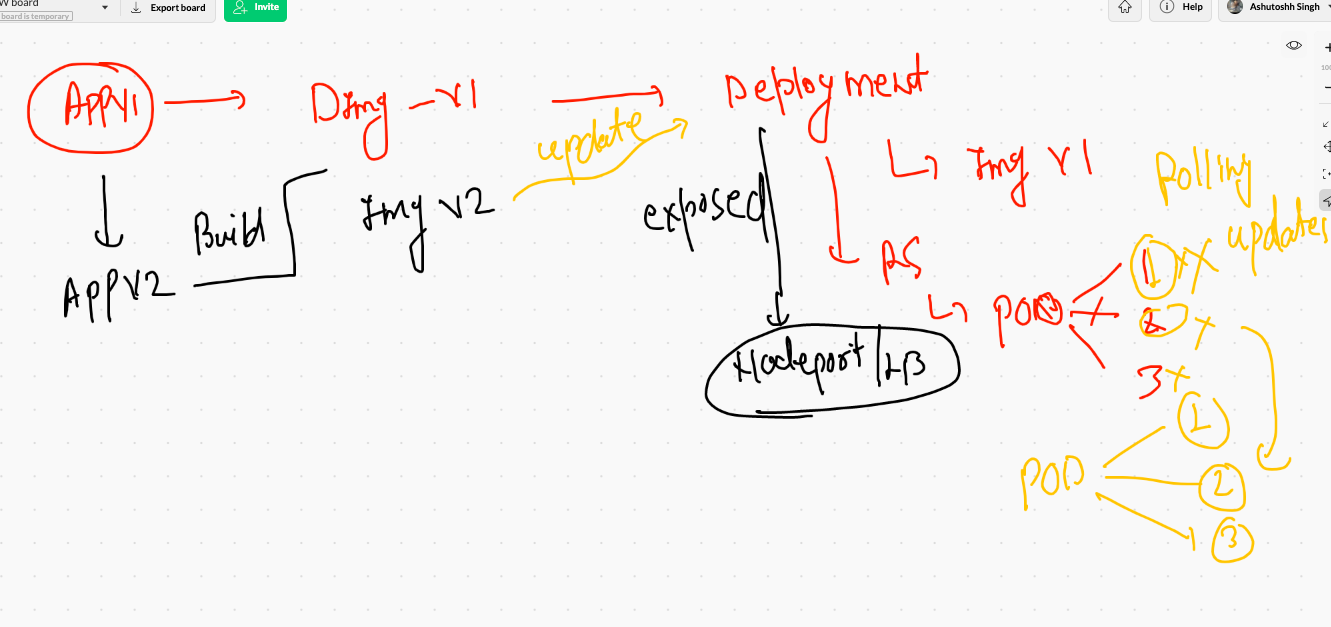 W board
board is temporary
Export board
Invite
Help
Ashutoshh Singh
100
APPV1
DImg - V1
Deployment
update
Img V1
Rolling
updates
Build
Img V2
exposed
RS
APPV2
POD
1
2
3
Nodeport / LB
POD
1
2
3